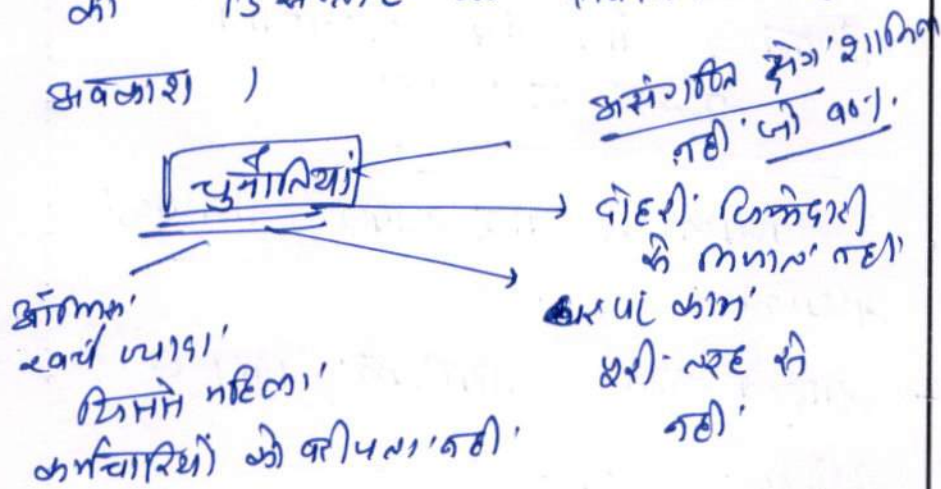 अवकाश )
चुनौतियां
असंगठित क्षेत्र शामिल
नहीं जो 90%.
दोहरी जिम्मेदारी
से नहीं
घर पर काम
पूरी तरह से
नहीं
खर्च ज्यादा
जिससे महिला
कर्मचारियों को वरीयता नहीं